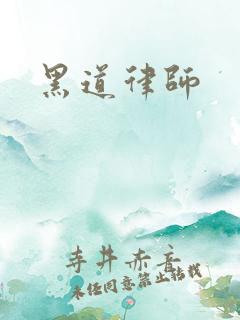 黑道律師
寺井赤音
未经同意禁止转载